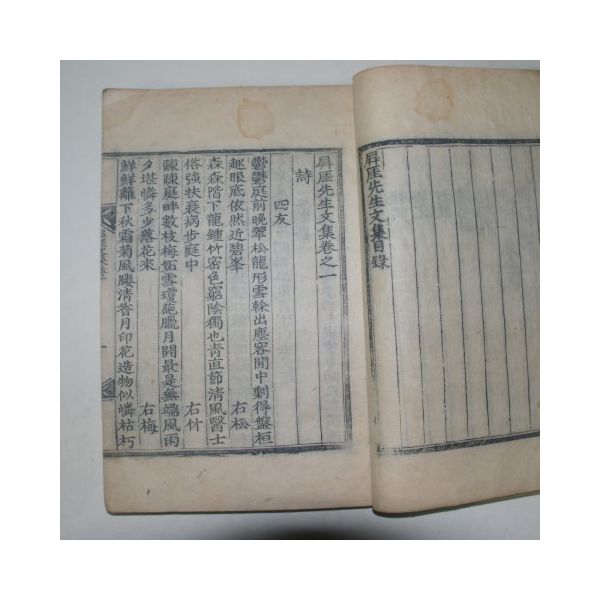 屛厓先生文集目錄
屛厓先生文集卷之一
詩
四友
鬱鬱庭前晩翠松龍形雪榦出塵容閒中剩得盤桓
趣眼底依然近碧峯 右松
森森階下龍鍾竹密色窮陰獨也靑直節淸風醫士
俗强扶衰病步庭中 右竹
踈踈庭畔數枝梅妬雪瓊葩臘月開最是無端風雨
夕堪憐多少落花來 右梅
鮮鮮籬下秋霜菊風朁月印花造物似憐枯朽